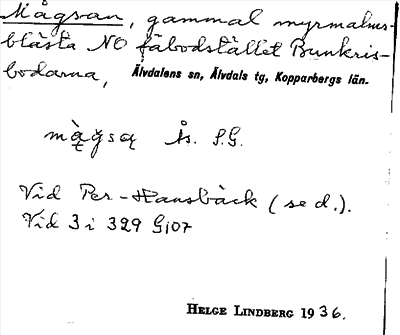 Mågsan, gammal myrmalms-
blästa NO fäbodstället Bunkris-
bodarna, Älvdalens sn, Älvdals tg, Kopparbergs län.
Ås. S.G.
Vid Per-Hansbäck (se d.).
Vid 3 i 329 Gj07
HELGE LINDBERG 1936.